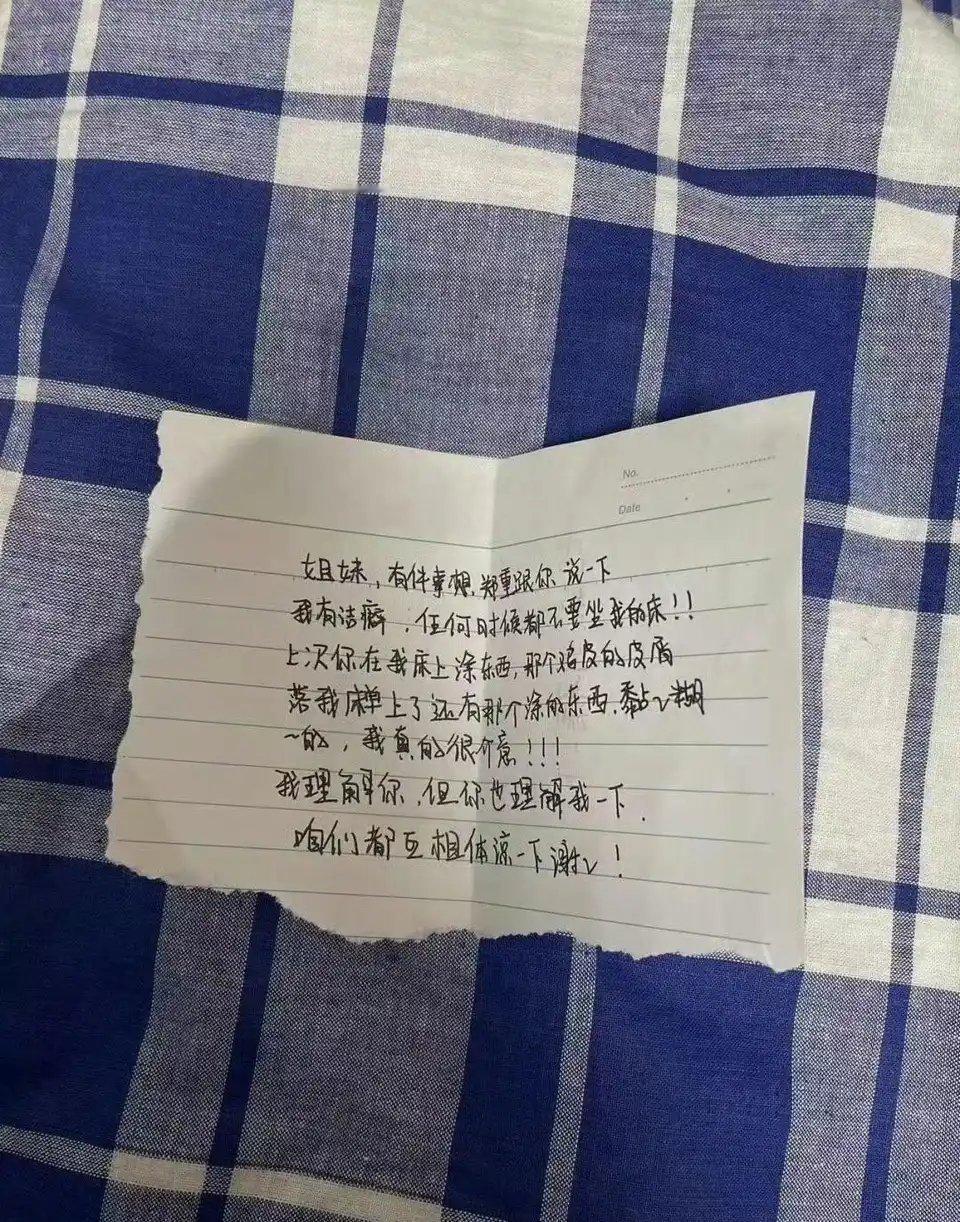 No.
Date
姐妹，有件事想，郑重跟你说一下
我有洁癖．任何时候都不要坐我的床！！
上次你在我床上涂东西，那个鸡皮的皮屑
落我床单上了还有那个涂的东西．黏~糊
~的，我真的很介意！！！
我理解你．但你也理解我一下．
咱们都互相体谅一下谢~！